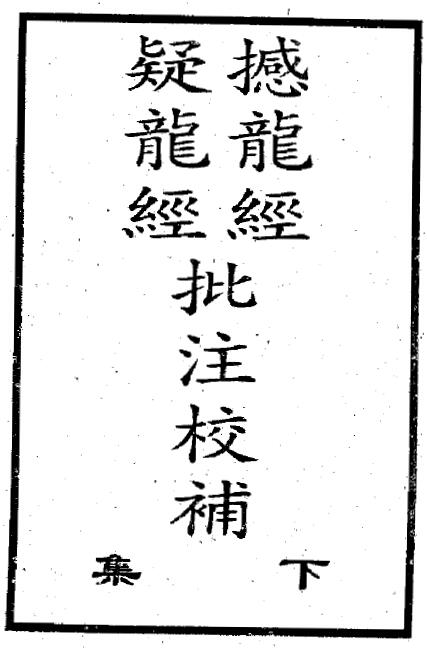 撼龍經
疑龍經
批注校補
下集